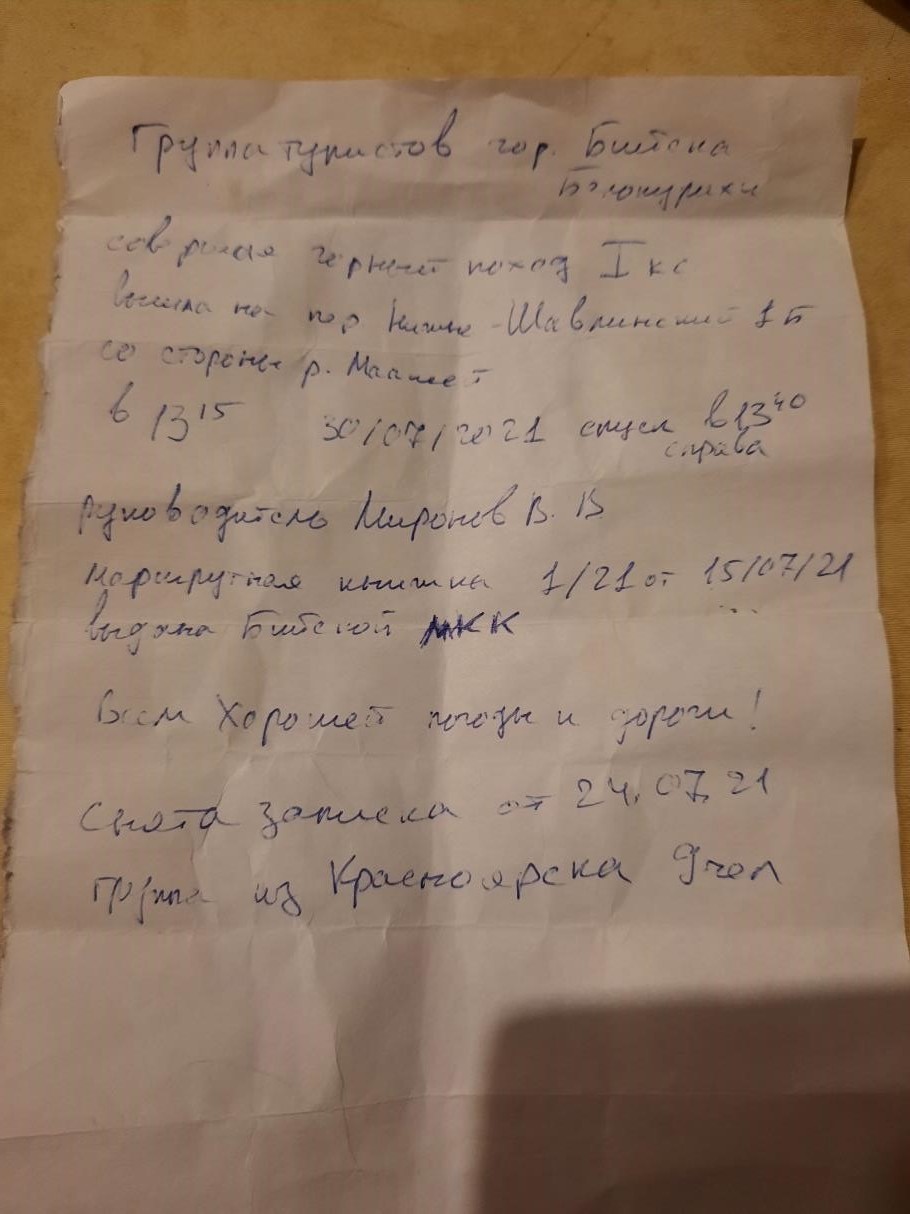 Группа туристов гор. Бийска
Белокурихи
совершая горный поход I кс
вышла на пер Нижне-Шавлинский 1Б
со стороны р. Маашей
в 13 15 30/07/2021 спуск в 13 40
справа
Руководитель Миронов В. В
Маршрутная книжка 1/21 от 15/07/21
выдана Бийской МКК
Всем Хорошей погоды и дороги!
Снята записка от 24.07.21
группа из Красноярска 9 чел